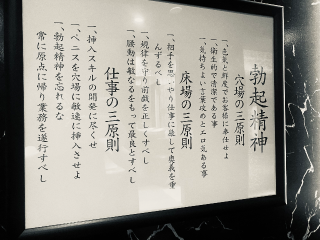 勃起精神
穴場の三原則
一、色気と鮮度でお客様に奉仕せよ
一、衛生的で清潔である事
一、気持ちよい言葉攻めとエロ気ある事
床場の三原則
一、相手を思いやり仕事に徹して奥義を重
んずるべし
一、規律を守り前戯を正しくすべし
一、腰動は敏なるをもって最良とすべし
仕事の三原則
一、挿入スキルの開発に尽くせ
一、ペニスを穴場に敏速に挿入させよ
一、勃起精神を忘れるな
常に原点に帰り業務を遂行すべし